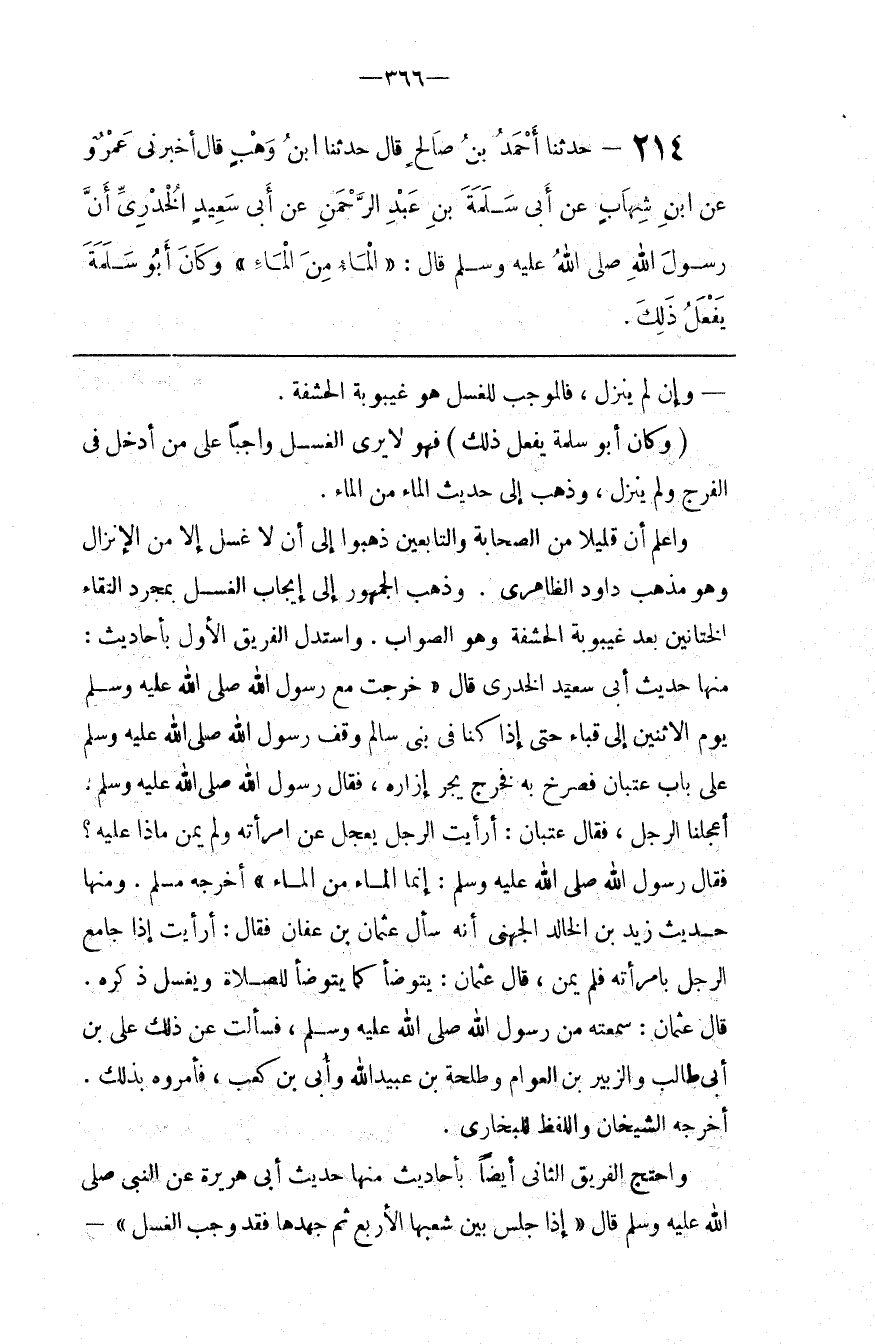 —٣٦٦—
٢١٤ – حدثنا أَحْمَدُ بنُ صَالحٍ قال حدثنا ابنُ وَهْبٍ قال أخبرنى عَمْرٌو
عن ابنِ شِهَابٍ عن أَبى سَلَمَةَ بنِ عَبْدِ الرَّحْمَنِ عن أَبى سَعِيدٍ الْخُدْرِىِّ أَنَّ
رسولَ اللهِ صلى اللهُ عليه وسلم قال : « الْمَاء مِنَ الْمَاءِ » وكَانَ أَبُو سَلَمَةَ
يَفْعَلُ ذَلِكَ .
— وإن لم ينزل ، فالموجب للغسل هو غيبوبة الحشفة .
( وكان أبو سلمة يفعل ذلك ) فهو لا يرى الغسل واجباً على من أدخل فى
الفرج ولم ينزل ، وذهب إلى حديث الماء من الماء .
واعلم أن قليلا من الصحابة والتابعين ذهبوا إلى أن لا غسل إلا من الإنزال
وهو مذهب داود الظاهرى . وذهب الجمهور إلى إيجاب الغسل بمجرد التقاء
الختانين بعد غيبوبة الحشفة وهو الصواب . واستدل الفريق الأول بأحاديث :
منها حديث أبى سعيد الخدرى قال « خرجت مع رسول الله صلى الله عليه وسلم
يوم الاثنين إلى قباء حتى إذا كنا فى بنى سالم وقف رسول الله صلى الله عليه وسلم
على باب عتبان فصرخ به فخرج يجر إزاره ، فقال رسول الله صلى الله عليه وسلم :
أعجلنا الرجل ، فقال عتبان : أرأيت الرجل يعجل عن امرأته ولم يمن ماذا عليه ؟
فقال رسول الله صلى الله عليه وسلم : إنما الماء من الماء » أخرجه مسلم . ومنها
حديث زيد بن الخالد الجهنى أنه سأل عثمان بن عفان فقال : أرأيت إذا جامع
الرجل بامرأته فلم يمن ، قال عثمان : يتوضأ كما يتوضأ للصلاة ويغسل ذكره .
قال عثمان : سمعته من رسول الله صلى الله عليه وسلم ، فسألت عن ذلك على بن
أبى طالب والزبير بن العوام وطلحة بن عبيد الله وأبى بن كعب ، فأمروه بذلك .
أخرجه الشيخان واللفظ للبخارى .
واحتج الفريق الثانى أيضاً بأحاديث منها حديث أبى هريرة عن النبى صلى
الله عليه وسلم قال « إذا جلس بين شعبها الأربع ثم جهدها فقد وجب الغسل » —